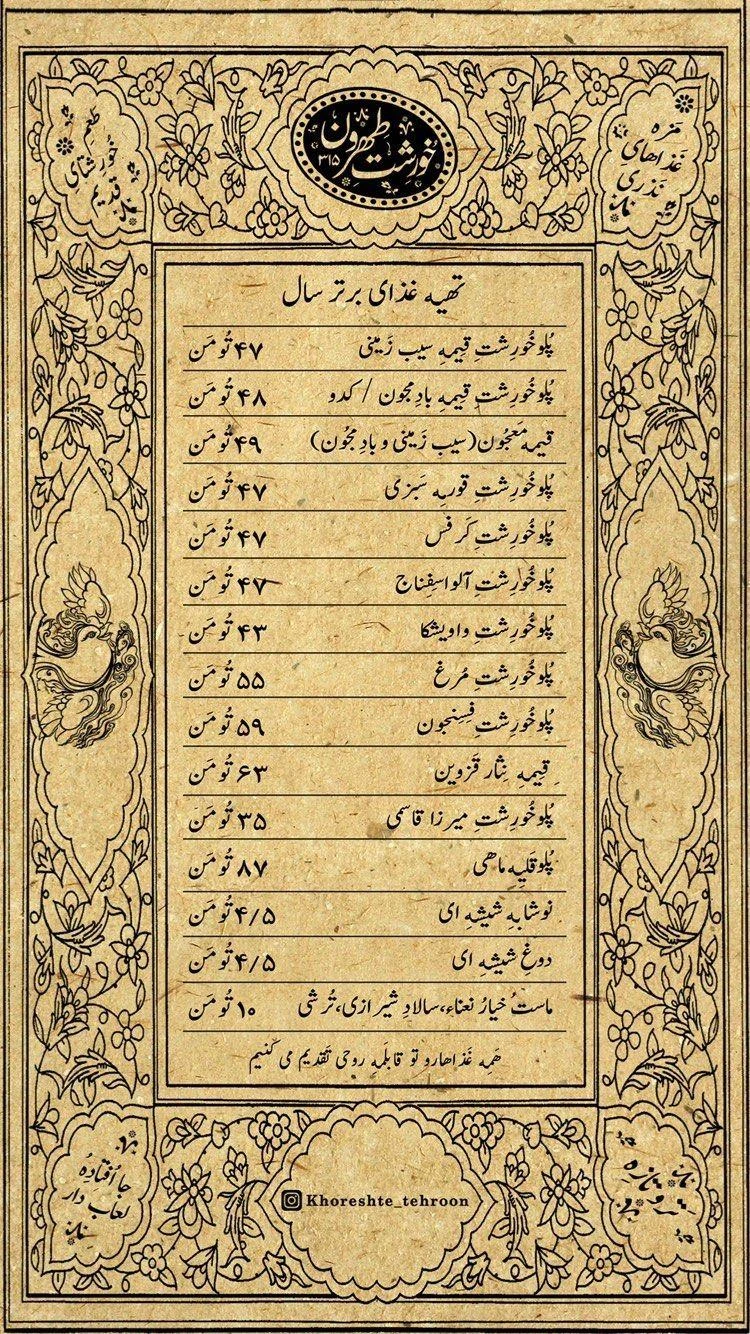 خورشت طهرون
۳۱۵
مزه
غذاهای
نذری
طعم
خورشتای
قدیم
تهیه غذای برتر سال
پُلوخُورِشتِ قِیمِه سیب زَمینی ۴۷ تُومَن
پُلوخُورِشتِ قِیمِه بادِمجون / کدو ۴۸ تُومَن
قیمه مَعجُون (سیب زَمینی و بادِمجُون) ۴۹ تُومَن
پُلوخُورِشتِ قورمِه سَبزی ۴۷ تُومَن
پُلوخُورِشتِ کَرَفس ۴۷ تُومَن
پُلوخُورِشتِ آلو اسفِناج ۴۷ تُومَن
پُلوخُورِشتِ واویشکا ۴۳ تُومَن
پُلوخُورِشتِ مُرغ ۵۵ تُومَن
پُلوخُورِشتِ فِسِنجون ۵۹ تُومَن
قِیمِه نِثار قَزوین ۶۳ تُومَن
پُلوخُورِشتِ میرزا قاسمی ۳۵ تُومَن
پُلوقَلیِه ماهی ۸۷ تُومَن
نوشابِه شیشِه ای ۴/۵ تُومَن
دوغِ شیشِه ای ۴/۵ تُومَن
ماست خیارُ نعناء، سالادِ شیرازی، تُرشی ۱۰ تُومَن
هَمِه غَذاهارو تو قابلَمِه روحی تَقدیم می کُنیم
جا اُفتادِهُ
لعاب دار
Khoreshte_tehroon